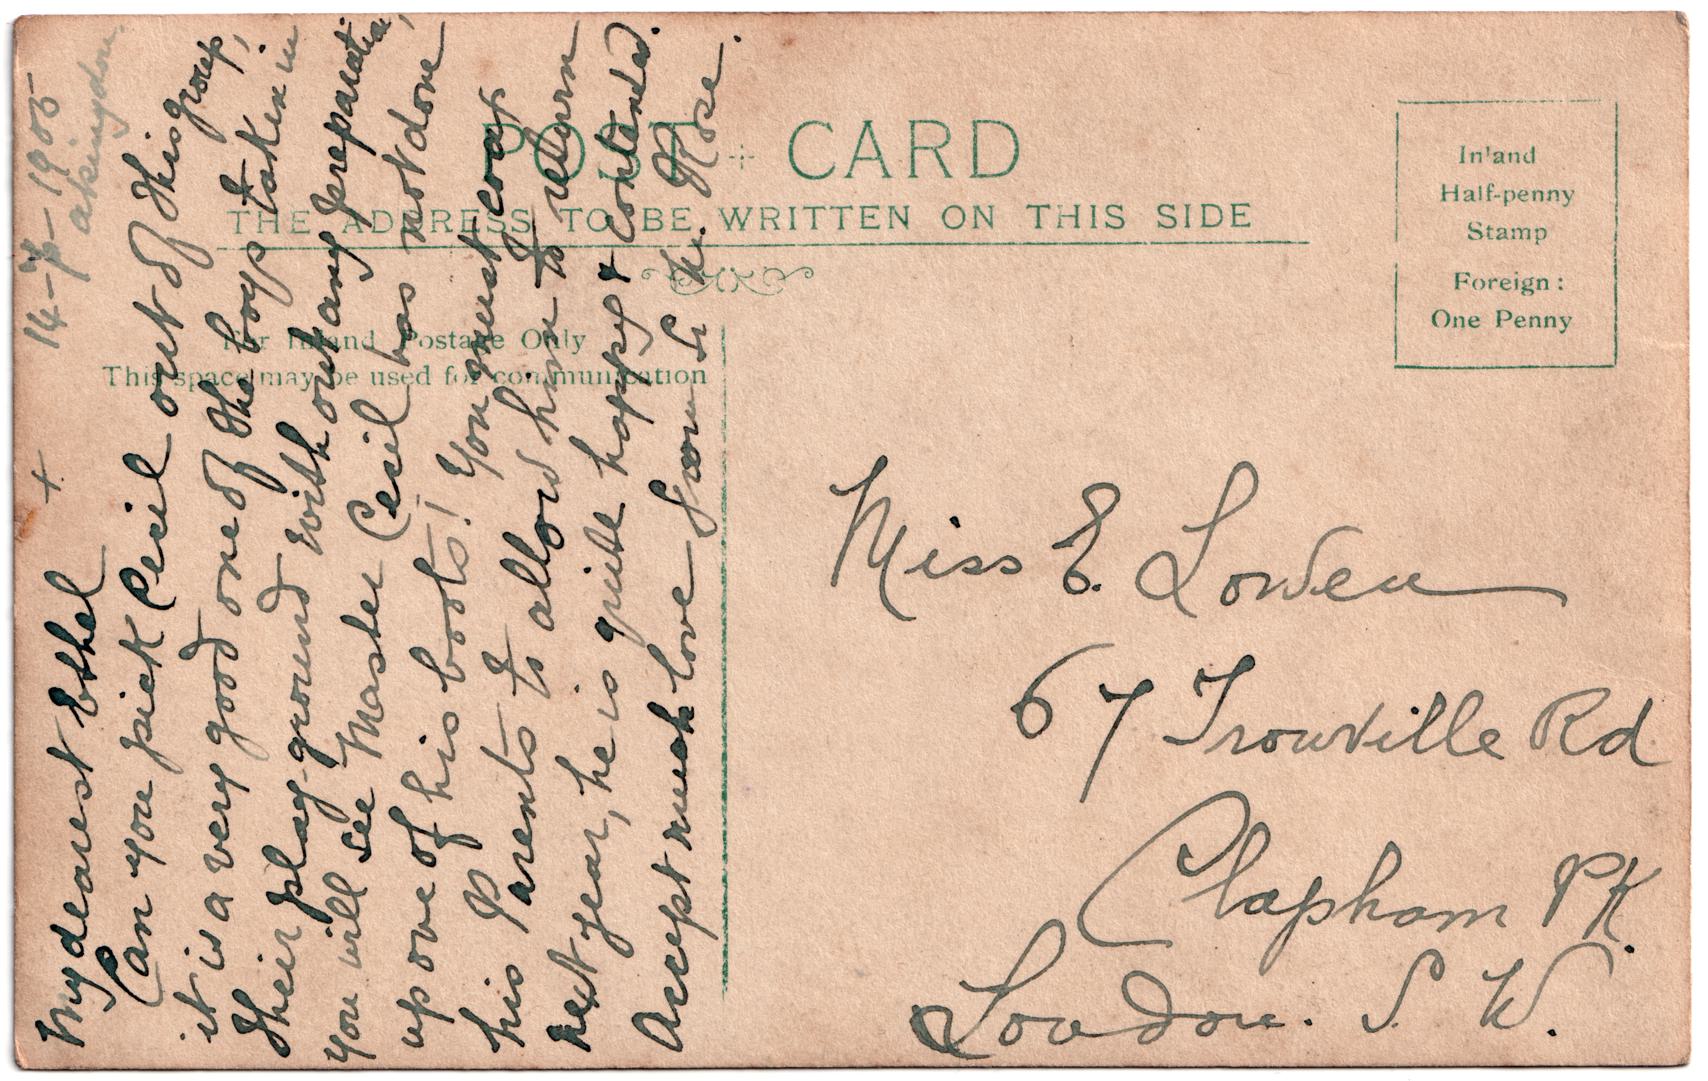 POST CARD
THE ADDRESS TO BE WRITTEN ON THIS SIDE
Inland
Half-penny
Stamp
Foreign:
One Penny
For Inland Postage Only
This space may be used for communication
14-7-1905
My dearest Ethel +
Can you pick Cecil out of this group,
it is a very good one of the boys taken in
their play-ground without any preparation
you will see Master Cecil has not done
up one of his boots! You must coax
his Parents to allow him to return
next year, he is quite happy & contented.
Accept much love from Sr M. Rose.
Miss E. Lowen
67 Trouville Rd
Clapham PK.
London. S. W.